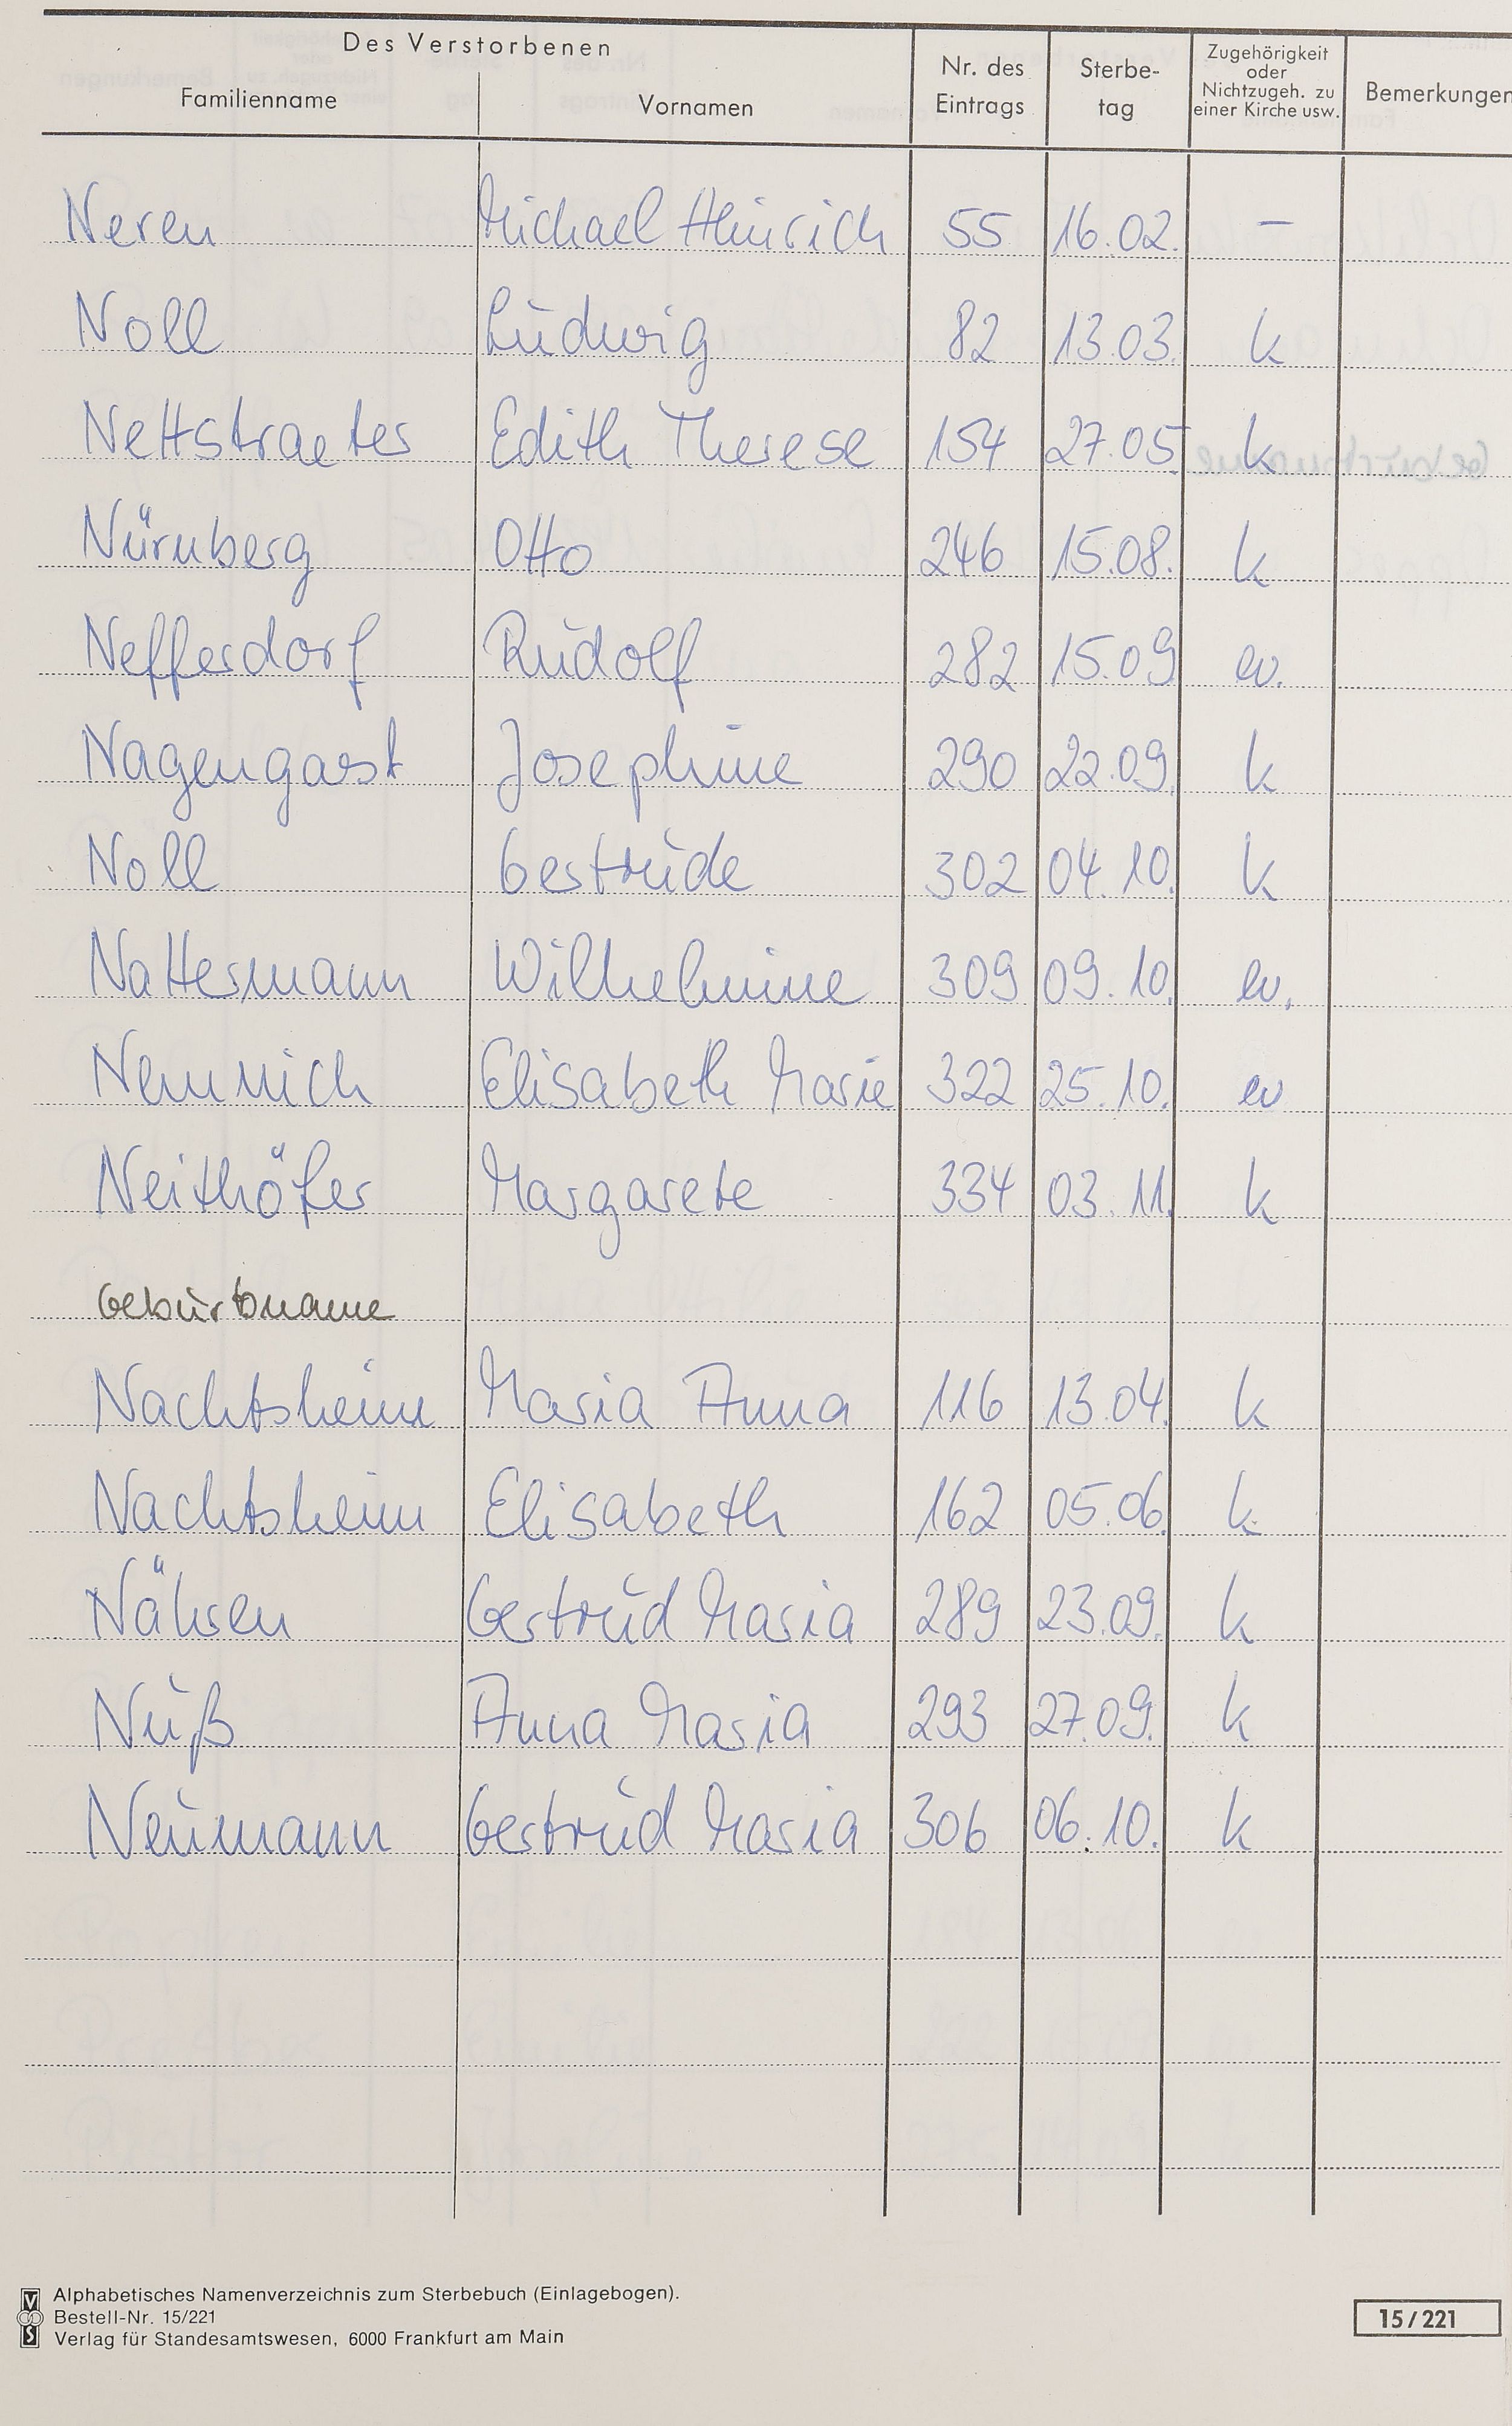 Des Verstorbenen
Familienname Vornamen Nr. des Eintrags Sterbetag Zugehörigkeit oder Nichtzugeh. zu einer Kirche usw. Bemerkungen
Neren Michael Heinrich 55 16.02. –
Noll Ludwig 82 13.03. k
Nettstraeter Edith Therese 154 27.05 k
Nürnberg Otto 246 15.08. k
Nefferdorf Rudolf 282 15.09 ev.
Nagengast Josephine 290 22.09. k
Noll Gertrude 302 04.10. k
Nattermann Wilhelmine 309 09.10. ev.
Nemnich Elisabeth Marie 322 25.10. ev
Neithöfer Margarete 334 03.11. k
Geburtsname
Nachtsheim Maria Anna 116 13.04. k
Nachtsheim Elisabeth 162 05.06. k.
Nähren Gertrud Maria 289 23.09. k
Nuß Anna Maria 293 27.09. k
Neumann Gertrud Maria 306 06.10. k
Alphabetisches Namenverzeichnis zum Sterbebuch (Einlagebogen).
Bestell-Nr. 15/221
Verlag für Standesamtswesen, 6000 Frankfurt am Main
15/221